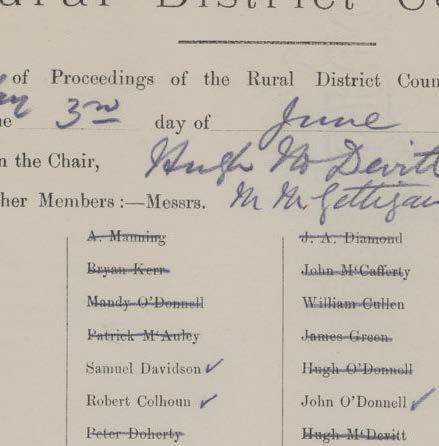 Rural District Co
of Proceedings of the Rural District Coun
3rd day of June
n the Chair, Hugh McDevitt
her Members :—Messrs. M McGettigan
A. Manning J. A. Diamond
Bryan Kerr John McCafferty
Mandy O'Donnell William Cullen
Patrick McAuley James Green
Samuel Davidson ✓ Hugh O'Donnell
Robert Colhoun ✓ John O'Donnell ✓
Peter Doherty Hugh McDevitt